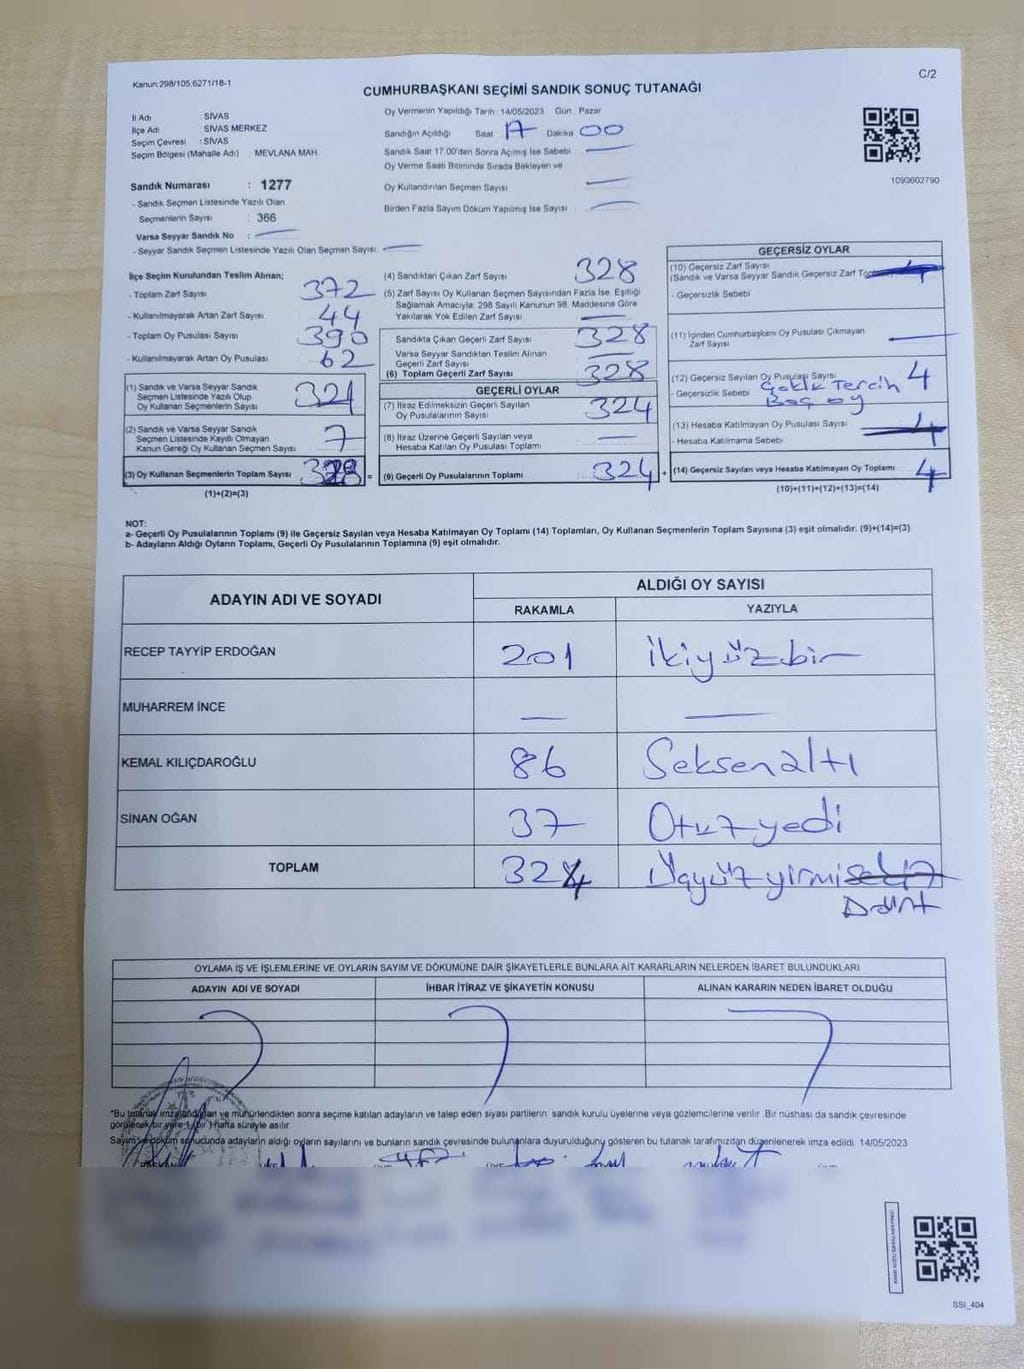 Kanun: 298/105,6271/18-1
C/2
CUMHURBAŞKANI SEÇİMİ SANDIK SONUÇ TUTANAĞI
İl Adı : SİVAS
İlçe Adı : SİVAS MERKEZ
Seçim Çevresi : SİVAS
Seçim Bölgesi (Mahalle Adı) : MEVLANA MAH.
Sandık Numarası : 1277
- Sandık Seçmen Listesinde Yazılı Olan
Seçmenlerin Sayısı : 366
Varsa Seyyar Sandık No :
- Seyyar Sandık Seçmen Listesinde Yazılı Olan Seçmen Sayısı:
Oy Vermenin Yapıldığı Tarih : 14/05/2023 Gün : Pazar
Sandığın Açıldığı Saat 17 Dakika 00
Sandık Saat 17.00'den Sonra Açımış İse Sebebi
Oy Verme Saati Bitiminde Sırada Bekleyen ve
Oy Kullandırılan Seçmen Sayısı
Birden Fazla Sayım Döküm Yapılmış İse Sayısı
1093602790
İlçe Seçim Kurulundan Teslim Alınan;
- Toplam Zarf Sayısı 372
- Kullanılmayarak Artan Zarf Sayısı 44
- Toplam Oy Pusulası Sayısı 390
- Kullanılmayarak Artan Oy Pusulası 62
(1) Sandık ve Varsa Seyyar Sandık
Seçmen Listesinde Yazılı Olup
Oy Kullanan Seçmenlerin Sayısı 321
(2) Sandık ve Varsa Seyyar Sandık
Seçmen Listesinde Kayıtlı Olmayan
Kanun Gereği Oy Kullanan Seçmen Sayısı 7
(3) Oy Kullanan Seçmenlerin Toplam Sayısı 328 =
(1)+(2)=(3)
(4) Sandıktan Çıkan Zarf Sayısı 328
(5) Zarf Sayısı Oy Kullanan Seçmen Sayısından Fazla İse, Eşitliği
Sağlamak Amacıyla, 298 Sayılı Kanunun 98. Maddesine Göre
Yakılarak Yok Edilen Zarf Sayısı
Sandıkta Çıkan Geçerli Zarf Sayısı 328
Varsa Seyyar Sandıktan Teslim Alınan
Geçerli Zarf Sayısı
(6) Toplam Geçerli Zarf Sayısı 328
GEÇERLİ OYLAR
(7) İtiraz Edilmeksizin Geçerli Sayılan
Oy Pusulalarının Sayısı 324
(8) İtiraz Üzerine Geçerli Sayılan veya
Hesaba Katılan Oy Pusulası Toplamı
(9) Geçerli Oy Pusulalarının Toplamı 324 +
GEÇERSİZ OYLAR
(10) Geçersiz Zarf Sayısı
(Sandık ve Varsa Seyyar Sandık Geçersiz Zarf 4
- Geçersizlik Sebebi
(11) İçinden Cumhurbaşkanı Oy Pusulası Çıkmayan
Zarf Sayısı
(12) Geçersiz Sayılan Oy Pusulası Sayısı 4
- Geçersizlik Sebebi Tercih
Boş oy
(13) Hesaba Katılmayan Oy Pusulası Sayısı 4
- Hesaba Katılmama Sebebi
(14) Geçersiz Sayılan veya Hesaba Katılmayan Oy Toplamı 4
(10)+(11)+(12)+(13)=(14)
NOT:
a- Geçerli Oy Pusulalarının Toplamı (9) ile Geçersiz Sayılan veya Hesaba Katılmayan Oy Toplamı (14) Toplamları, Oy Kullanan Seçmenlerin Toplam Sayısına (3) eşit olmalıdır. (9)+(14)=(3)
b- Adayların Aldığı Oyların Toplamı, Geçerli Oy Pusulalarının Toplamına (9) eşit olmalıdır.
ADAYIN ADI VE SOYADI
ALDIĞI OY SAYISI
RAKAMLA YAZIYLA
RECEP TAYYİP ERDOĞAN 201 ikiyüzbir
MUHARREM İNCE
KEMAL KILIÇDAROĞLU 86 Seksenaltı
SİNAN OĞAN 37 Otuzyedi
TOPLAM 324 Üçyüzyirmisekiz
Dört
OYLAMA İŞ VE İŞLEMLERİNE VE OYLARIN SAYIM VE DÖKÜMÜNE DAİR ŞİKAYETLERLE BUNLARA AİT KARARLARIN NELERDEN İBARET BULUNDUKLARI
ADAYIN ADI VE SOYADI İHBAR İTİRAZ VE ŞİKAYETİN KONUSU ALINAN KARARIN NEDEN İBARET OLDUĞU
*Bu tutanak imzalandıktan ve mühürlendikten sonra seçime katılan adayların ve talep eden siyasi partilerin sandık kurulu üyelerine veya gözlemcilerine verilir. Bir nüshası da sandık çevresinde
görülecek bir yere 1 (bir ) hafta süreyle asılır.
Sayım ve döküm sonucunda adayların aldığı oyların sayılarını ve bunların sandık çevresinde bulunanlara duyurulduğunu gösteren bu tutanak tarafımızdan düzenlenerek imza edildi. 14/05/2023
SSI_404